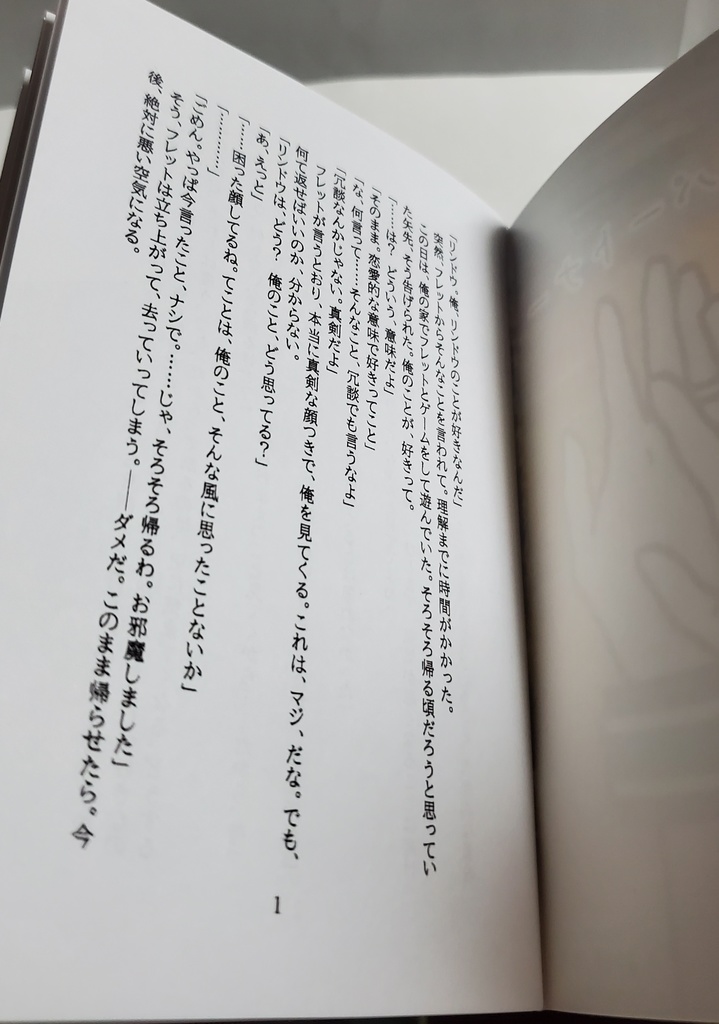 「リンドウ。俺、リンドウのことが好きなんだ」
突然、フレットからそんなことを言われて。理解までに時間がかかった。
この日は、俺の家でフレットとゲームをして遊んでいた。そろそろ帰る頃だろうと思ってい
た矢先、そう告げられた。俺のことが、好きって。
「……は? どういう、意味だよ」
「そのまま。恋愛的な意味で好きってこと」
「な、何言って……そんなこと、冗談でも言うなよ」
「冗談なんかじゃない。真剣だよ」
フレットが言うとおり、本当に真剣な顔つきで、俺を見てくる。これは、マジ、だな。でも、
何て返せばいいのか、分からない。
「リンドウは、どう? 俺のこと、どう思ってる?」
「あ、えっと」
「……困った顔してるね。てことは、俺のこと、そんな風に思ったことないか」
「…………」
「ごめん。やっぱ今言ったこと、ナシで。……じゃ、そろそろ帰るわ。お邪魔しました」
そう、フレットは立ち上がって、去っていってしまう。――ダメだ。このまま帰らせたら。今
後、絶対に悪い空気になる。
1